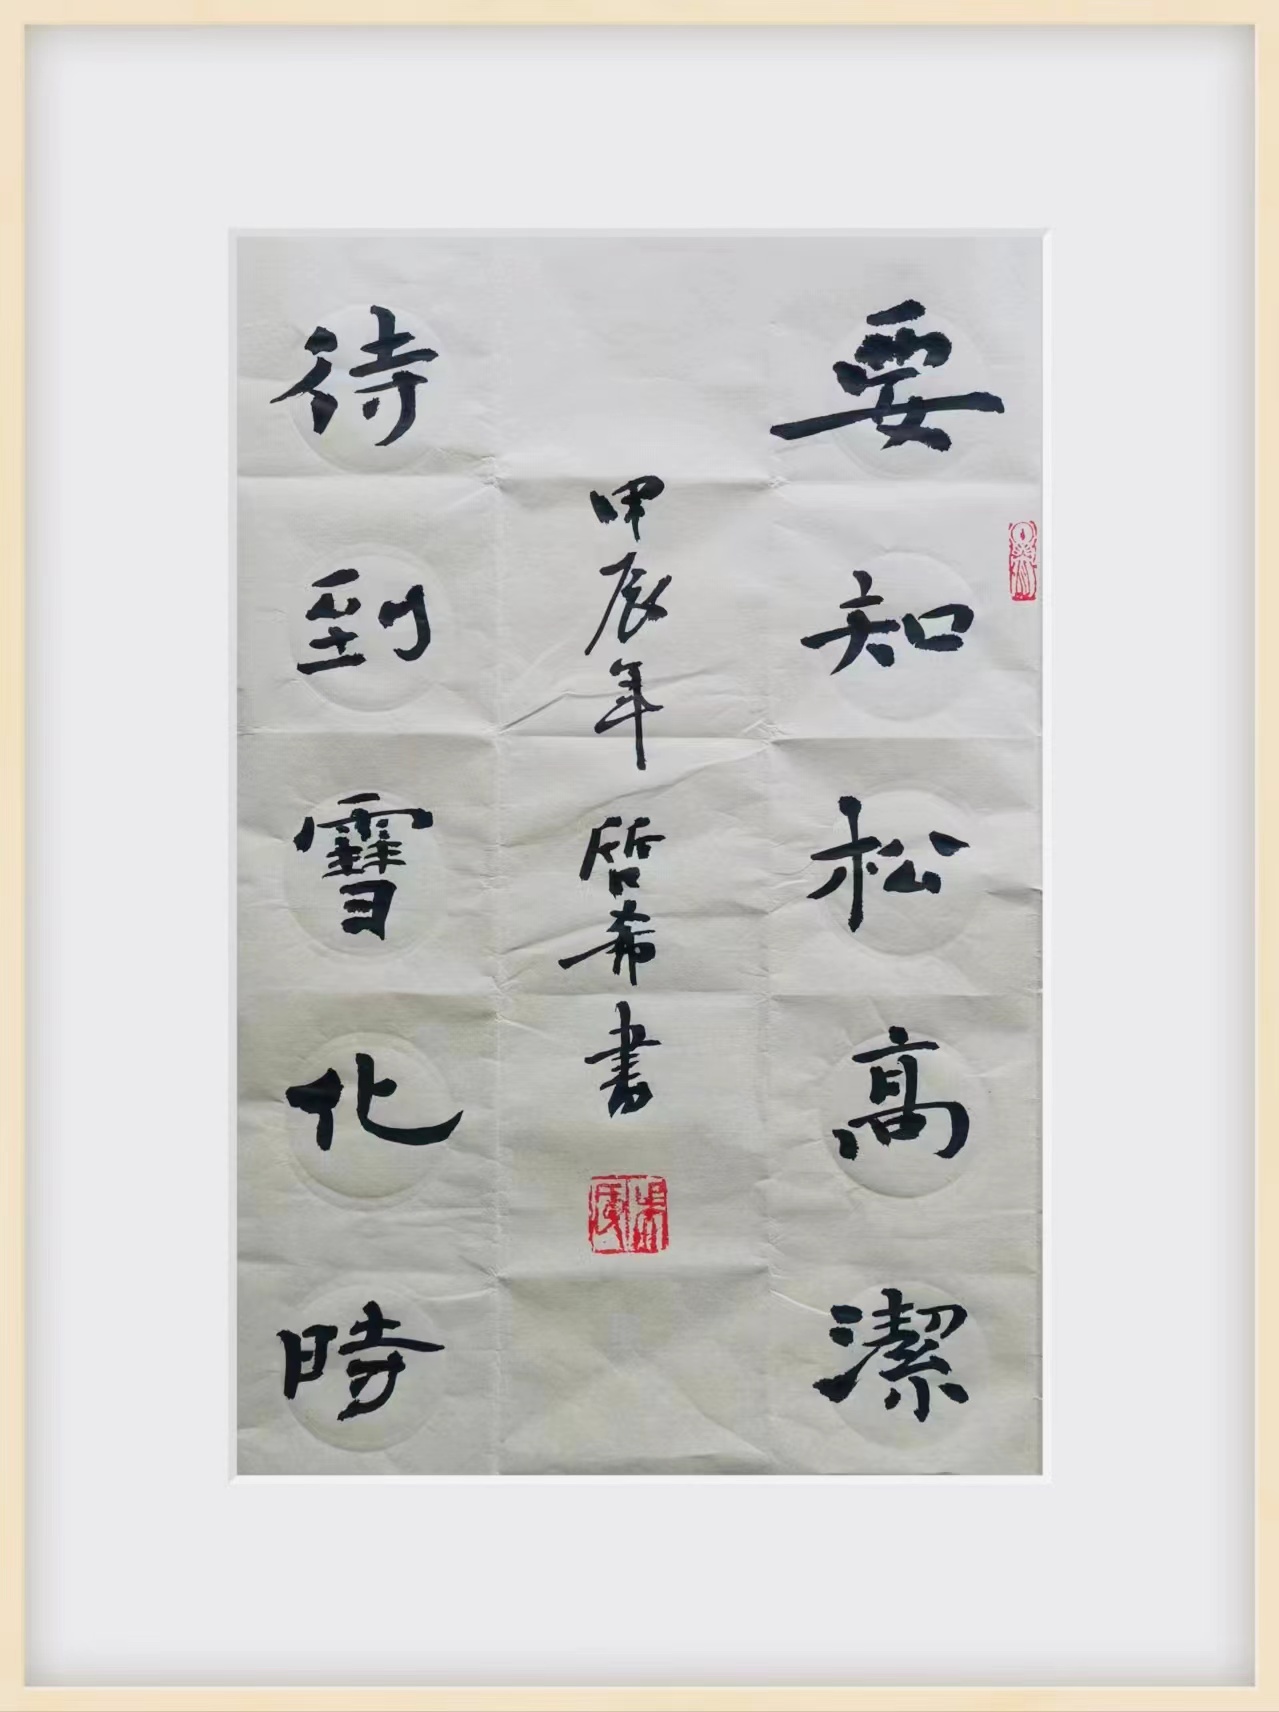 要知松高潔
待到雪化時
甲辰年 哲希書